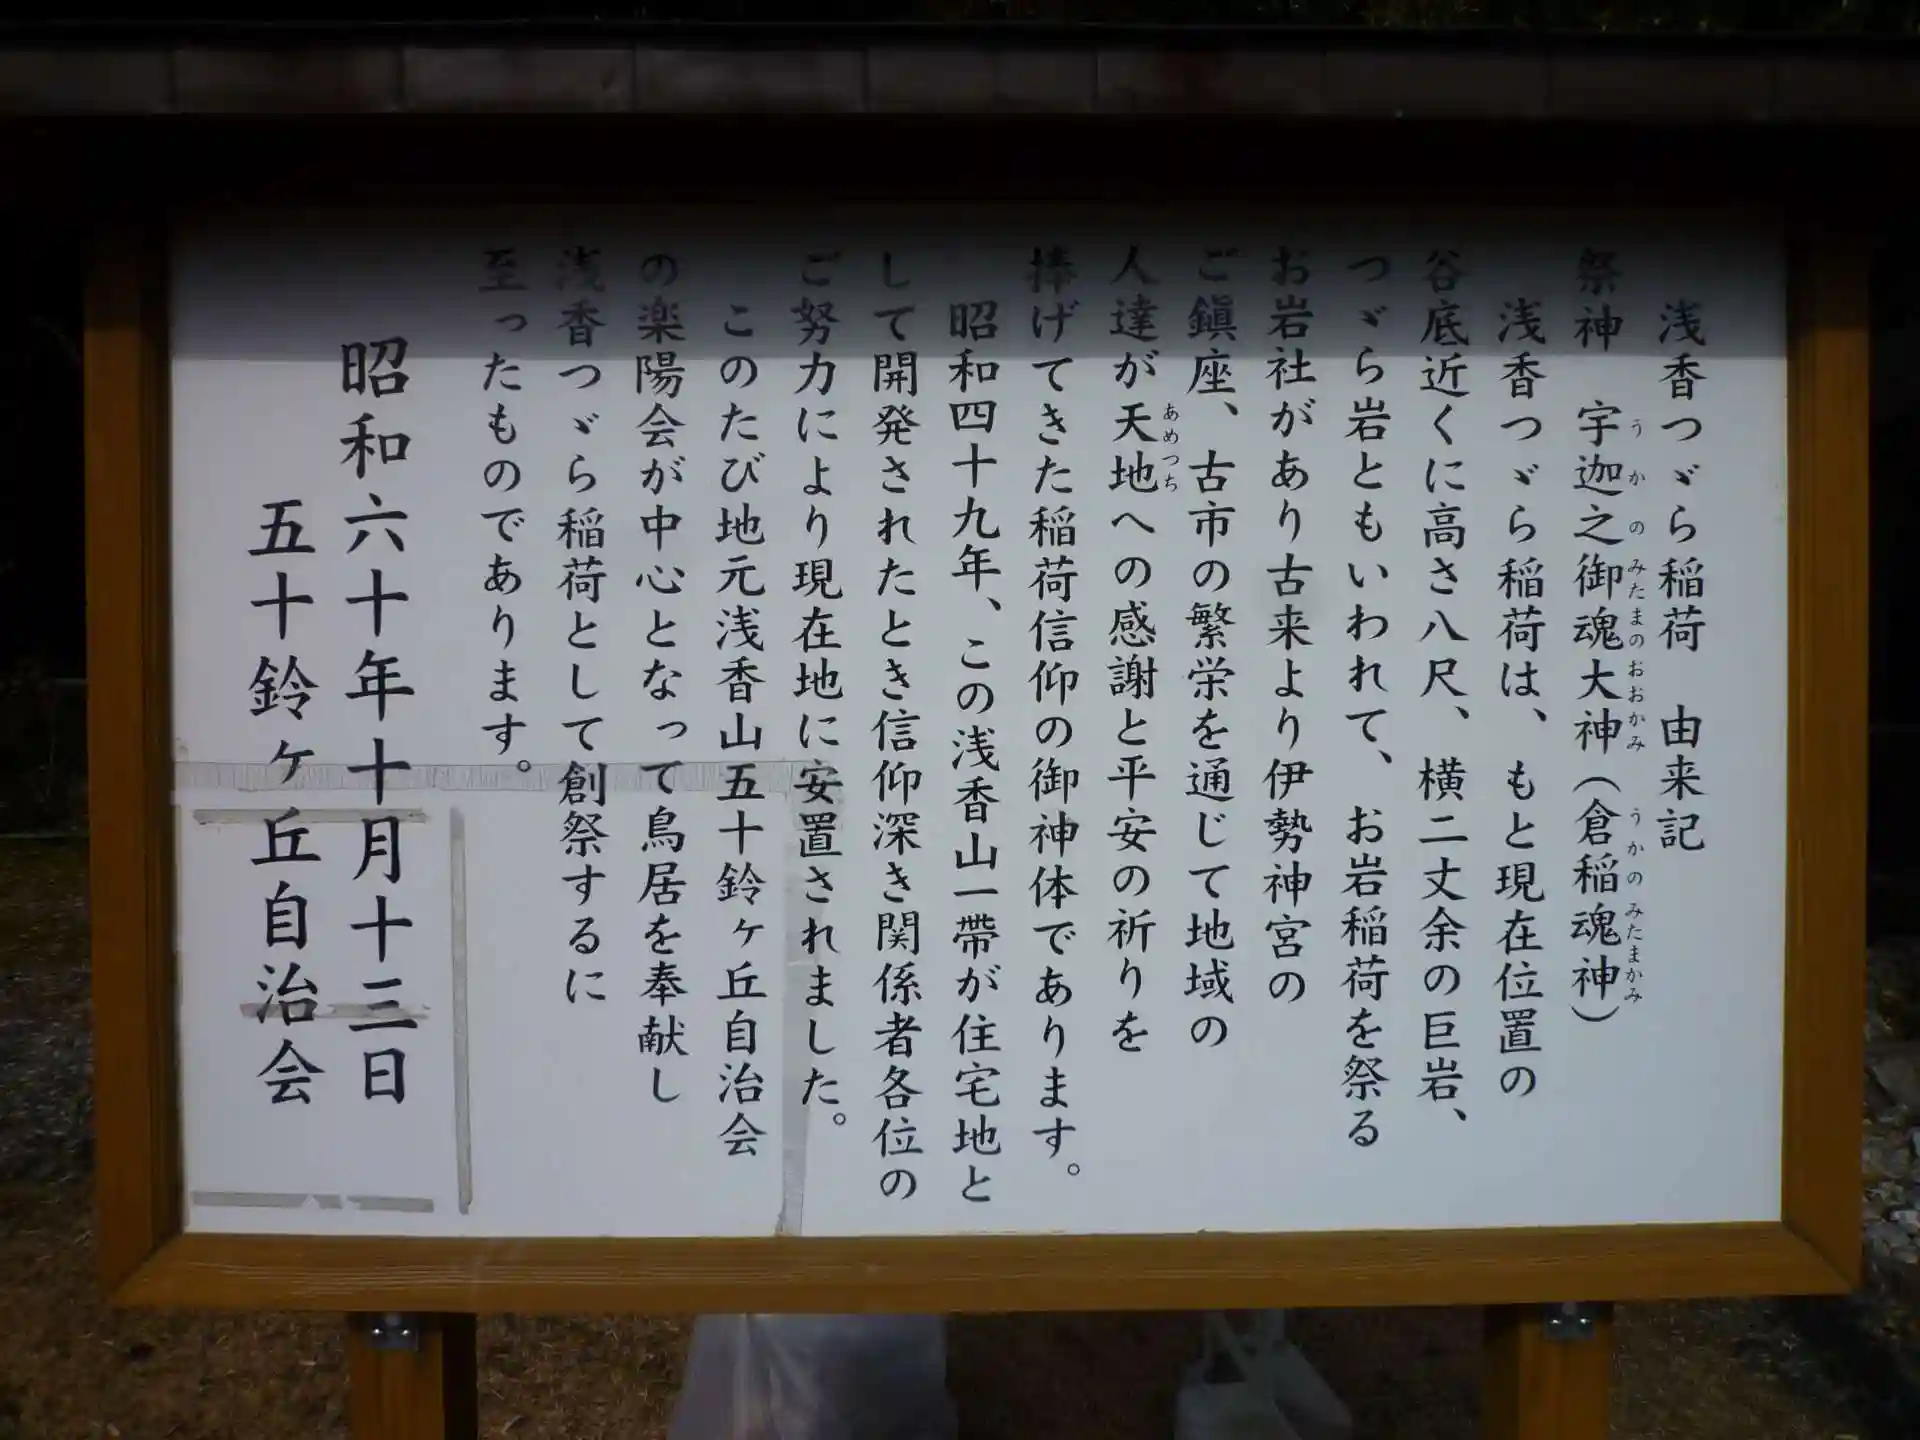 浅香つゞら稲荷　由来記
祭神　宇迦之御魂大神（倉稲魂神）
うかのみたまのおおかみ　うかのみたまかみ
浅香つゞら稲荷は、もと現在位置の
谷底近くに高さ八尺、横二丈余の巨岩、
つゞら岩ともいわれて、お岩稲荷を祭る
お岩社があり古来より伊勢神宮の
ご鎮座、古市の繁栄を通じて地域の
人達が天地への感謝と平安の祈りを
あめつち
捧げてきた稲荷信仰の御神体であります。
昭和四十九年、この浅香山一帯が住宅地と
して開発されたとき信仰深き関係者各位の
ご努力により現在地に安置されました。
このたび地元浅香山五十鈴ヶ丘自治会
の楽陽会が中心となって鳥居を奉献し
浅香つゞら稲荷として創祭するに
至ったものであります。
昭和六十年十月十三日
五十鈴ヶ丘自治会